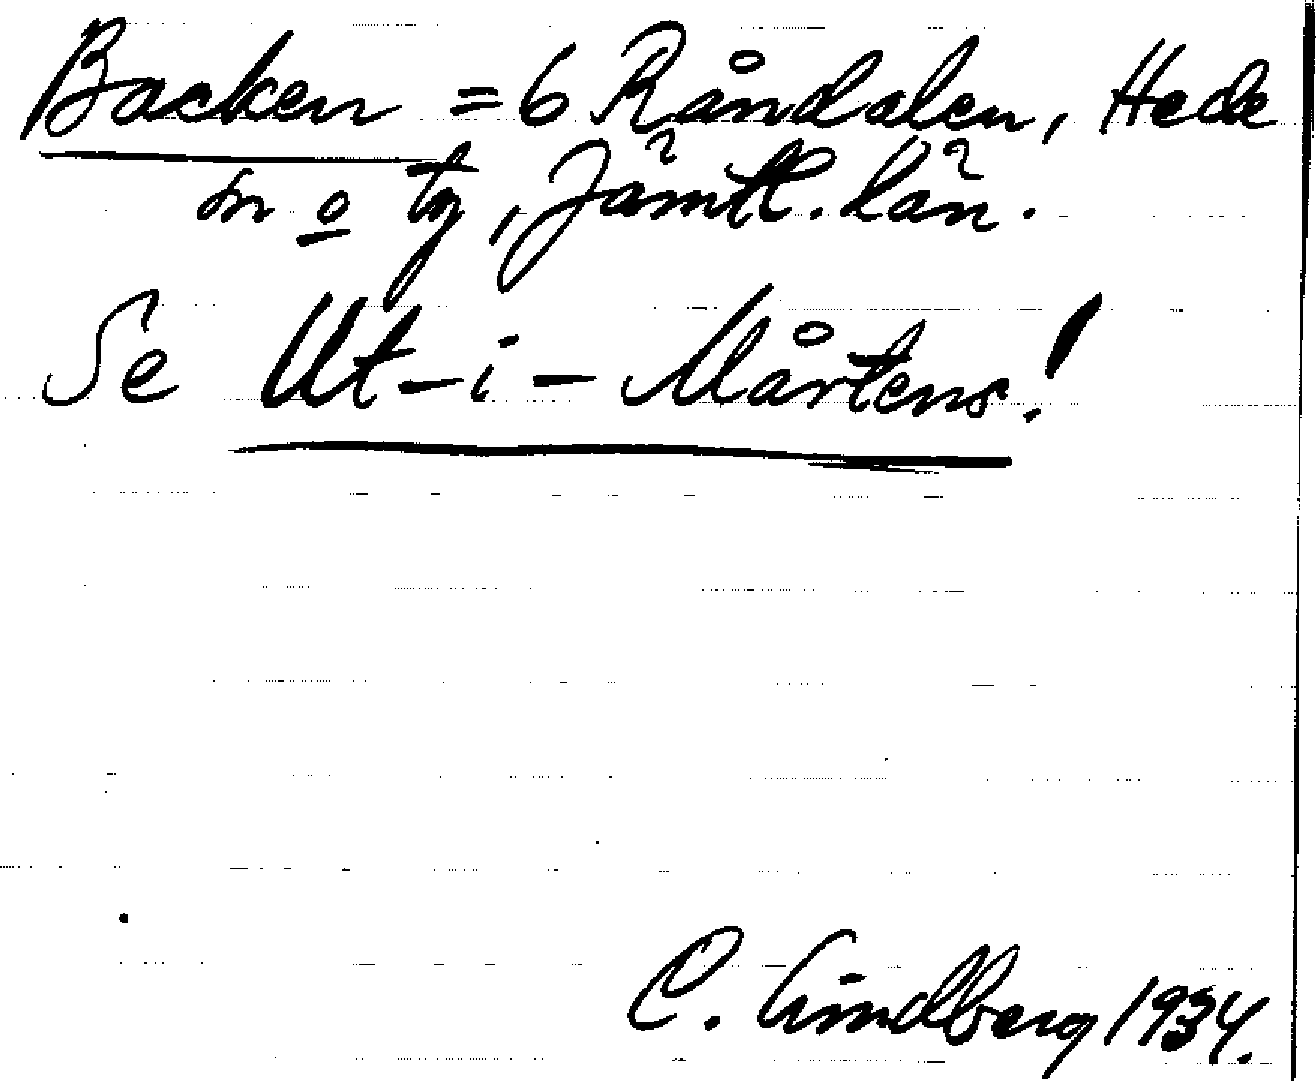 Backen = 6 Råndalen, Hede
sn o tg, Jämtl. län.
Se Ut-i-Mårtens!
C. Lindberg 1934.